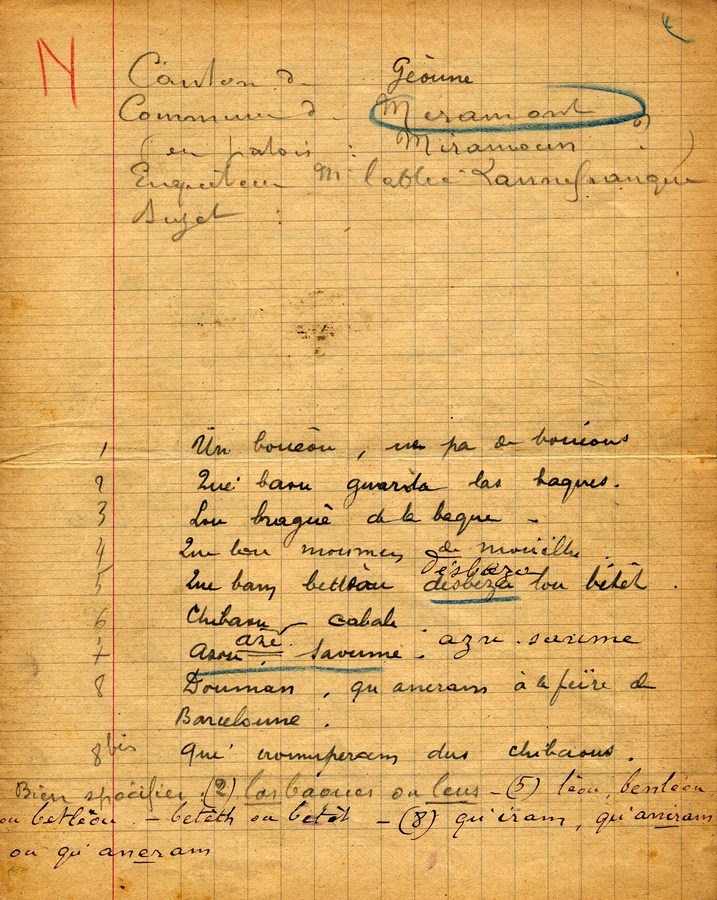 N
Canton de Géoune
Commune de Miramont
(en patois : Miramoun ?)
Enquêteur Mr l'abbé Lannefranque
Sujet :
1 Un bouéou, un pa de bouéous
2 Qué baou guarda las baques.
3 Lou braguè de la baque
4 Que lou moumen de mouilhe.
5 Que bam betlèou desbeza lou bétêt.
désbaza
6 Chibaou cabale
7 azou, saoume. azru. saoume
aze
8 Douman, qu'aneram à la fèïre de
Barceloune.
8bis Que croumperam dus chibaous.
Bien spécifier. (2) las baques ou leus - (5) lèou, benlèou
ou betlèou. - betèth ou betêt - (8) qu'iram, qu'aniram
ou qu'aneram